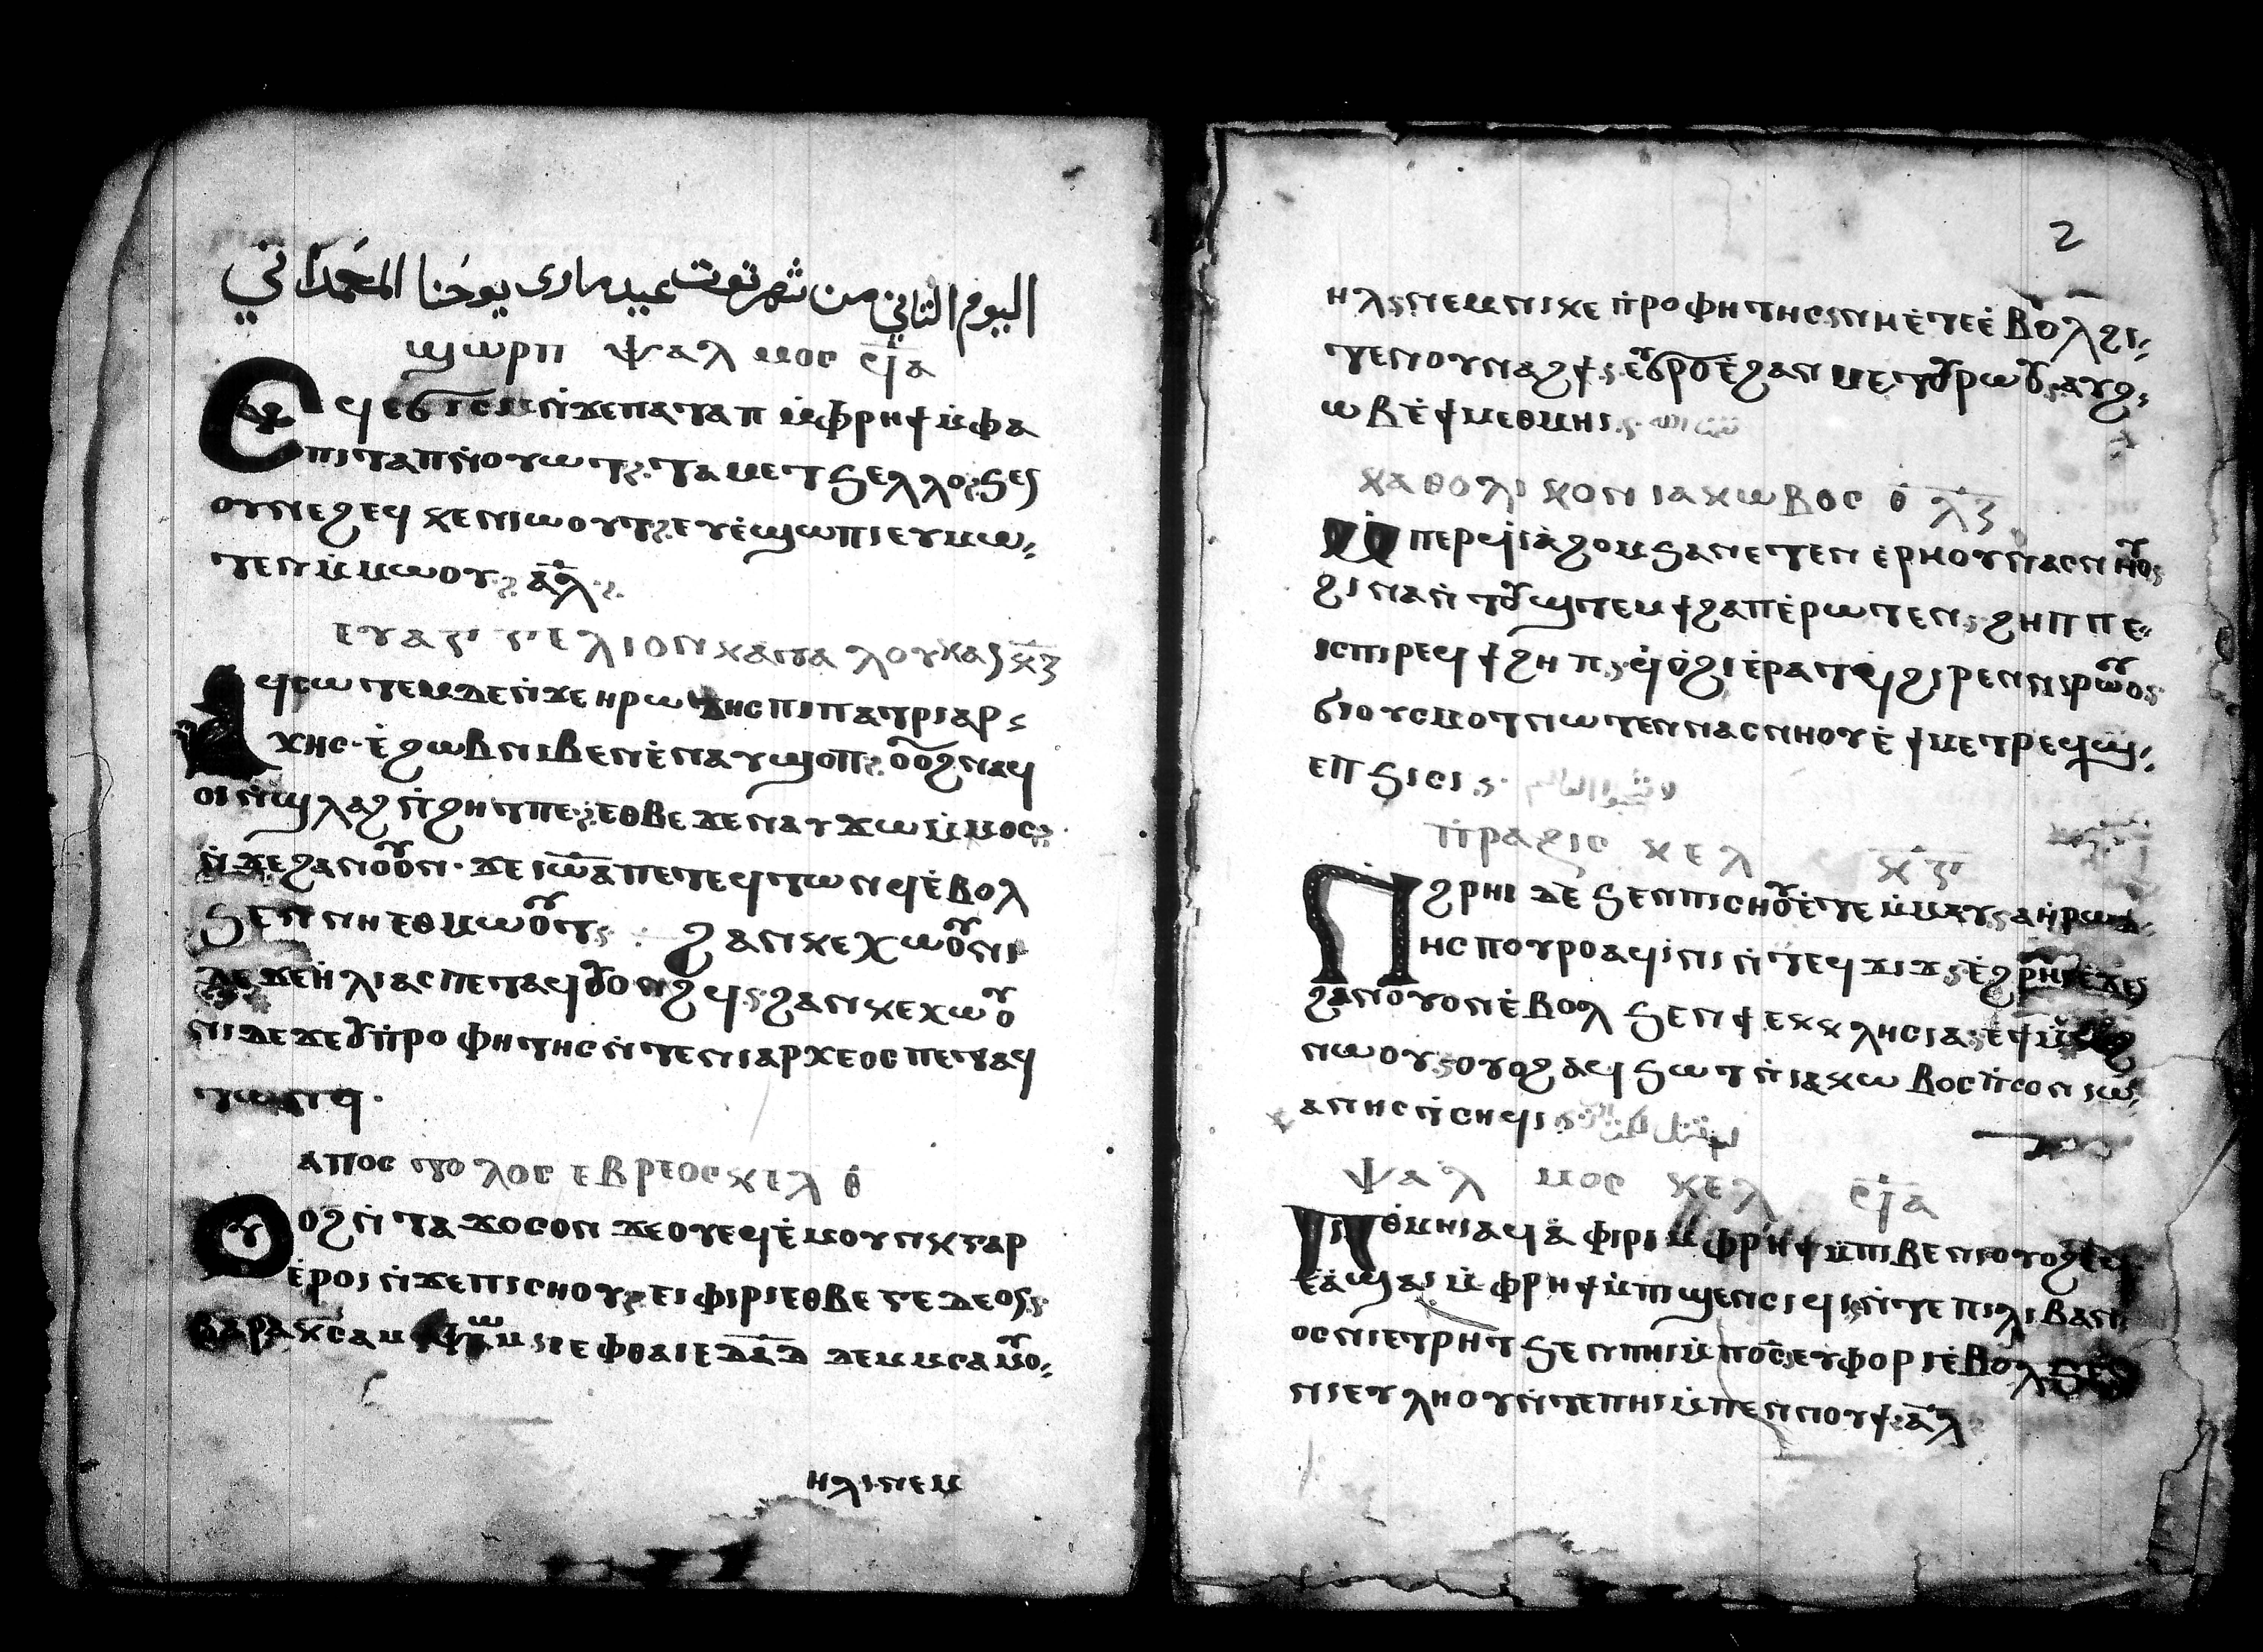 اليوم الثاني من شهر توت عيد ماري يوحنا المعمداني
ϣⲱⲣⲡ ⲯⲁⲗⲙⲟⲥ ϥ̅ⲁ̅
Ⲉϥⲉϭⲓⲥⲓ ⲛ̇ϫⲉⲡⲁⲧⲁⲡ ⲙ̇ⲫⲣⲏϯ ⲙ̇ⲫⲁ
ⲡⲓⲧⲁⲡ ⲛ̇ⲟⲩⲱⲧ ⲧⲁⲙⲉⲧϧⲉⲗⲗⲟ ϧⲉⲛ
ⲟⲩⲛⲉϩ ⲉϥⲕⲉⲛⲓⲱⲟⲩⲧ ⲉⲩⲉ̇ϣⲱⲡⲓ ⲉⲩⲙⲱ
ⲧⲉⲛ ⲙ̇ⲙⲱⲟⲩ ⲁ̅ⲗ̅
ⲉⲩⲁⲅⲅⲉⲗⲓⲟⲛ ⲕⲁⲧⲁ ⲗⲟⲩⲕⲁⲛ ⲕ̅ⲍ̅
Ⲁϥⲥⲱⲧⲉⲙ ⲇⲉ ⲛ̇ϫⲉ ⲏⲣⲱⲇⲏⲥ ⲡⲓⲡⲁⲧⲣⲓⲁⲣ
ⲭⲏⲥ ⲉ̇ϩⲱⲃ ⲛⲓⲃⲉⲛ ⲉ̇ⲛⲁⲩϣⲟⲡ ⲟⲩⲟϩ ⲛⲁϥ
ⲟⲓ ⲛ̇ϣⲗⲁϩ ⲛ̇ϩⲏⲧ ⲡⲉ ⲉⲑⲃⲉ ϫⲉ ⲛⲁⲩϫⲱ ⲙ̇ⲙⲟⲥ
ⲛ̇ϫⲉ ϩⲁⲛⲟⲩⲟⲛ ϫⲉ ⲓⲱ̅ⲁ̅ ⲡⲉⲧⲉϥⲧⲱⲛϥ ⲉ̇ⲃⲟⲗ
ϧⲉⲛ ⲛⲏⲉⲑⲙⲱⲟⲩⲧ ϩⲁⲛⲕⲉⲭⲱⲟⲩⲛⲓ
ⲇⲉ ϫⲉ ⲏ̇ⲗⲓⲁⲥ ⲡⲉⲧⲁϥⲟⲩⲟⲛϩϥ ϩⲁⲛⲕⲉⲭⲱⲟⲩ
ⲛⲓ ⲇⲉ ϫⲉ ⲟⲩⲡ̇ⲣⲟⲫⲏⲧⲏⲥ ⲛ̇ⲧⲉ ⲛⲓⲁⲣⲭⲉⲟⲥ ⲡⲉⲧⲁϥ
ⲧⲱⲛϥ
ⲁⲡⲟⲥⲧⲟⲗⲟⲥ ⲉⲃⲣⲉⲟⲥ ⲕⲉⲗ ⲑ̇
Ⲟⲩⲟϩ ⲛ̇ⲧⲁϫⲟⲥ ⲟⲛ ϫⲉ ⲟⲩ ⲉϥⲉ̇ⲙⲟⲩⲛⲕ ⲅⲁⲣ
ⲉ̇ⲣⲟⲓ ⲛ̇ϫⲉ ⲡⲓⲥⲛⲟⲩ ⲉⲓⲫⲓⲣⲓ ⲉⲑⲃⲉ ⲅⲉⲇⲉⲟⲥ
ⲃⲁⲣⲁⲕ ⲥⲁⲙ ⲓⲉⲫⲑⲁⲓⲉ ⲇ̅ⲁ̅ⲇ̅ ⲛⲉⲙ ⲥⲁⲙⲟⲩ
ⲏⲗ ⲛⲉⲙ
2
ⲏⲗ ⲛⲉⲙ ⲛⲓⲕⲉ ⲡ̇ⲣⲟⲫⲏⲧⲏⲥ ⲛⲏⲉ̇ⲧⲉ ⲉ̇ⲃⲟⲗ ϩⲓ
ⲧⲉⲛ ⲟⲩⲛⲁϩϯ ⲉⲩϭⲣⲟ ⲉ̇ϩⲁⲛⲙⲉⲧⲟⲩⲣⲱⲟⲩ ⲁⲩⲣϩ
ⲱⲃ ⲉ̇ϯⲙⲉⲑⲙⲏⲓ
ⲕⲁⲑⲟⲗⲓⲕⲟⲛ ⲓⲁⲕⲱⲃⲟⲥ ⲑ̇ ⲗ̅ⲍ̅
Ⲙ̇ⲡⲉⲣϥⲓⲁ̇ϩⲟⲙ ϧⲁ ⲛⲉⲧⲉⲛⲉ̇ⲣⲏⲟⲩ ⲛⲁⲥⲛⲏⲟⲩ
ϩⲓⲛⲁ ⲛ̇ⲧⲟⲩϣⲧⲉⲙϯϩⲁⲡ ⲉ̇ⲣⲱⲧⲉⲛ ϩⲏⲡⲡⲉ
ⲓⲥ ⲡⲓⲣⲉϥϯϩⲏⲡ ϥⲟ̇ϩⲓ ⲉ̇ⲣⲁⲧϥ ϩⲓⲣⲉⲛ ⲛⲓⲣⲱⲟⲩ
ϭⲓ ⲟⲩⲥⲙⲟⲧ ⲛⲱⲧⲉⲛ ⲛⲁⲥⲛⲏⲟⲩ ⲉ̇ϯⲙⲉⲧⲣⲉϥϣ
ⲉⲡϧⲓⲥⲓ
ⲡ̇ⲣⲁⲝⲓⲥ ⲕⲉⲗ ⲕ̅ⲍ̅
Ⲛϩⲣⲏⲓ ⲇⲉ ϧⲉⲛ ⲡⲓⲥⲏⲟⲩ ⲉ̇ⲧⲉ ⲙ̇ⲙⲁⲩ ⲁ ⲏ̇ⲣⲱⲇ
ⲏⲥ ⲡⲟⲩⲣⲟ ⲁϥⲓ̇ⲛⲓ ⲛ̇ⲧⲉϥϫⲓϫ ⲉ̇ϩⲣⲏⲓ ⲉ̇ϫⲉⲛ
ϩⲁⲛⲟⲩⲟⲛ ⲉ̇ⲃⲟⲗ ϧⲉⲛ ϯⲉⲕⲕⲗⲏⲥⲓⲁ ⲉ̇ϯⲙ̇ⲕⲁϩ
ⲛⲱⲟⲩ ⲟⲩⲟϩ ⲁϥϧⲱⲧ ⲛ̇ⲓⲁⲕⲱⲃⲟⲥ ⲡ̇ⲥⲟⲛ ⲓⲱ
ⲁⲛⲏⲥ ⲛ̇ⲥⲏϥⲓ
ⲯⲁⲗⲙⲟⲥ ⲕⲉⲗ ϥ̅ⲁ̅
Ⲡⲓⲑ̇ⲙⲏⲓ ⲁϥⲁ̇ⲫⲓⲣⲓ ⲙ̇ⲫⲣⲏϯ ⲙ̇ⲡⲓⲃⲉⲛⲓ ⲟⲩⲟϩ ⲉϥ
ⲉⲁ̇ϣⲁⲓ ⲙ̇ⲫⲣⲏϯ ⲙ̇ⲡⲓϣⲉⲛⲥⲓϥⲓ ⲛ̇ⲧⲉ ⲡⲓⲗⲓⲃⲁⲛ
ⲟⲥ ⲛⲓⲉⲧⲣⲏⲧ ϧⲉⲛ ⲡⲏⲓ ⲙ̇ⲡⲟ̅ⲥ̅ ⲉⲩⲫⲟⲣⲓ ⲉ̇ⲃⲟⲗ ϧⲉⲛ
ⲛⲓⲉⲩⲗⲏⲟⲩ ⲛ̇ⲧⲉ ⲡⲏⲓ ⲙ̇ⲡⲉⲛⲛⲟⲩϯ ⲁ̅ⲗ̅